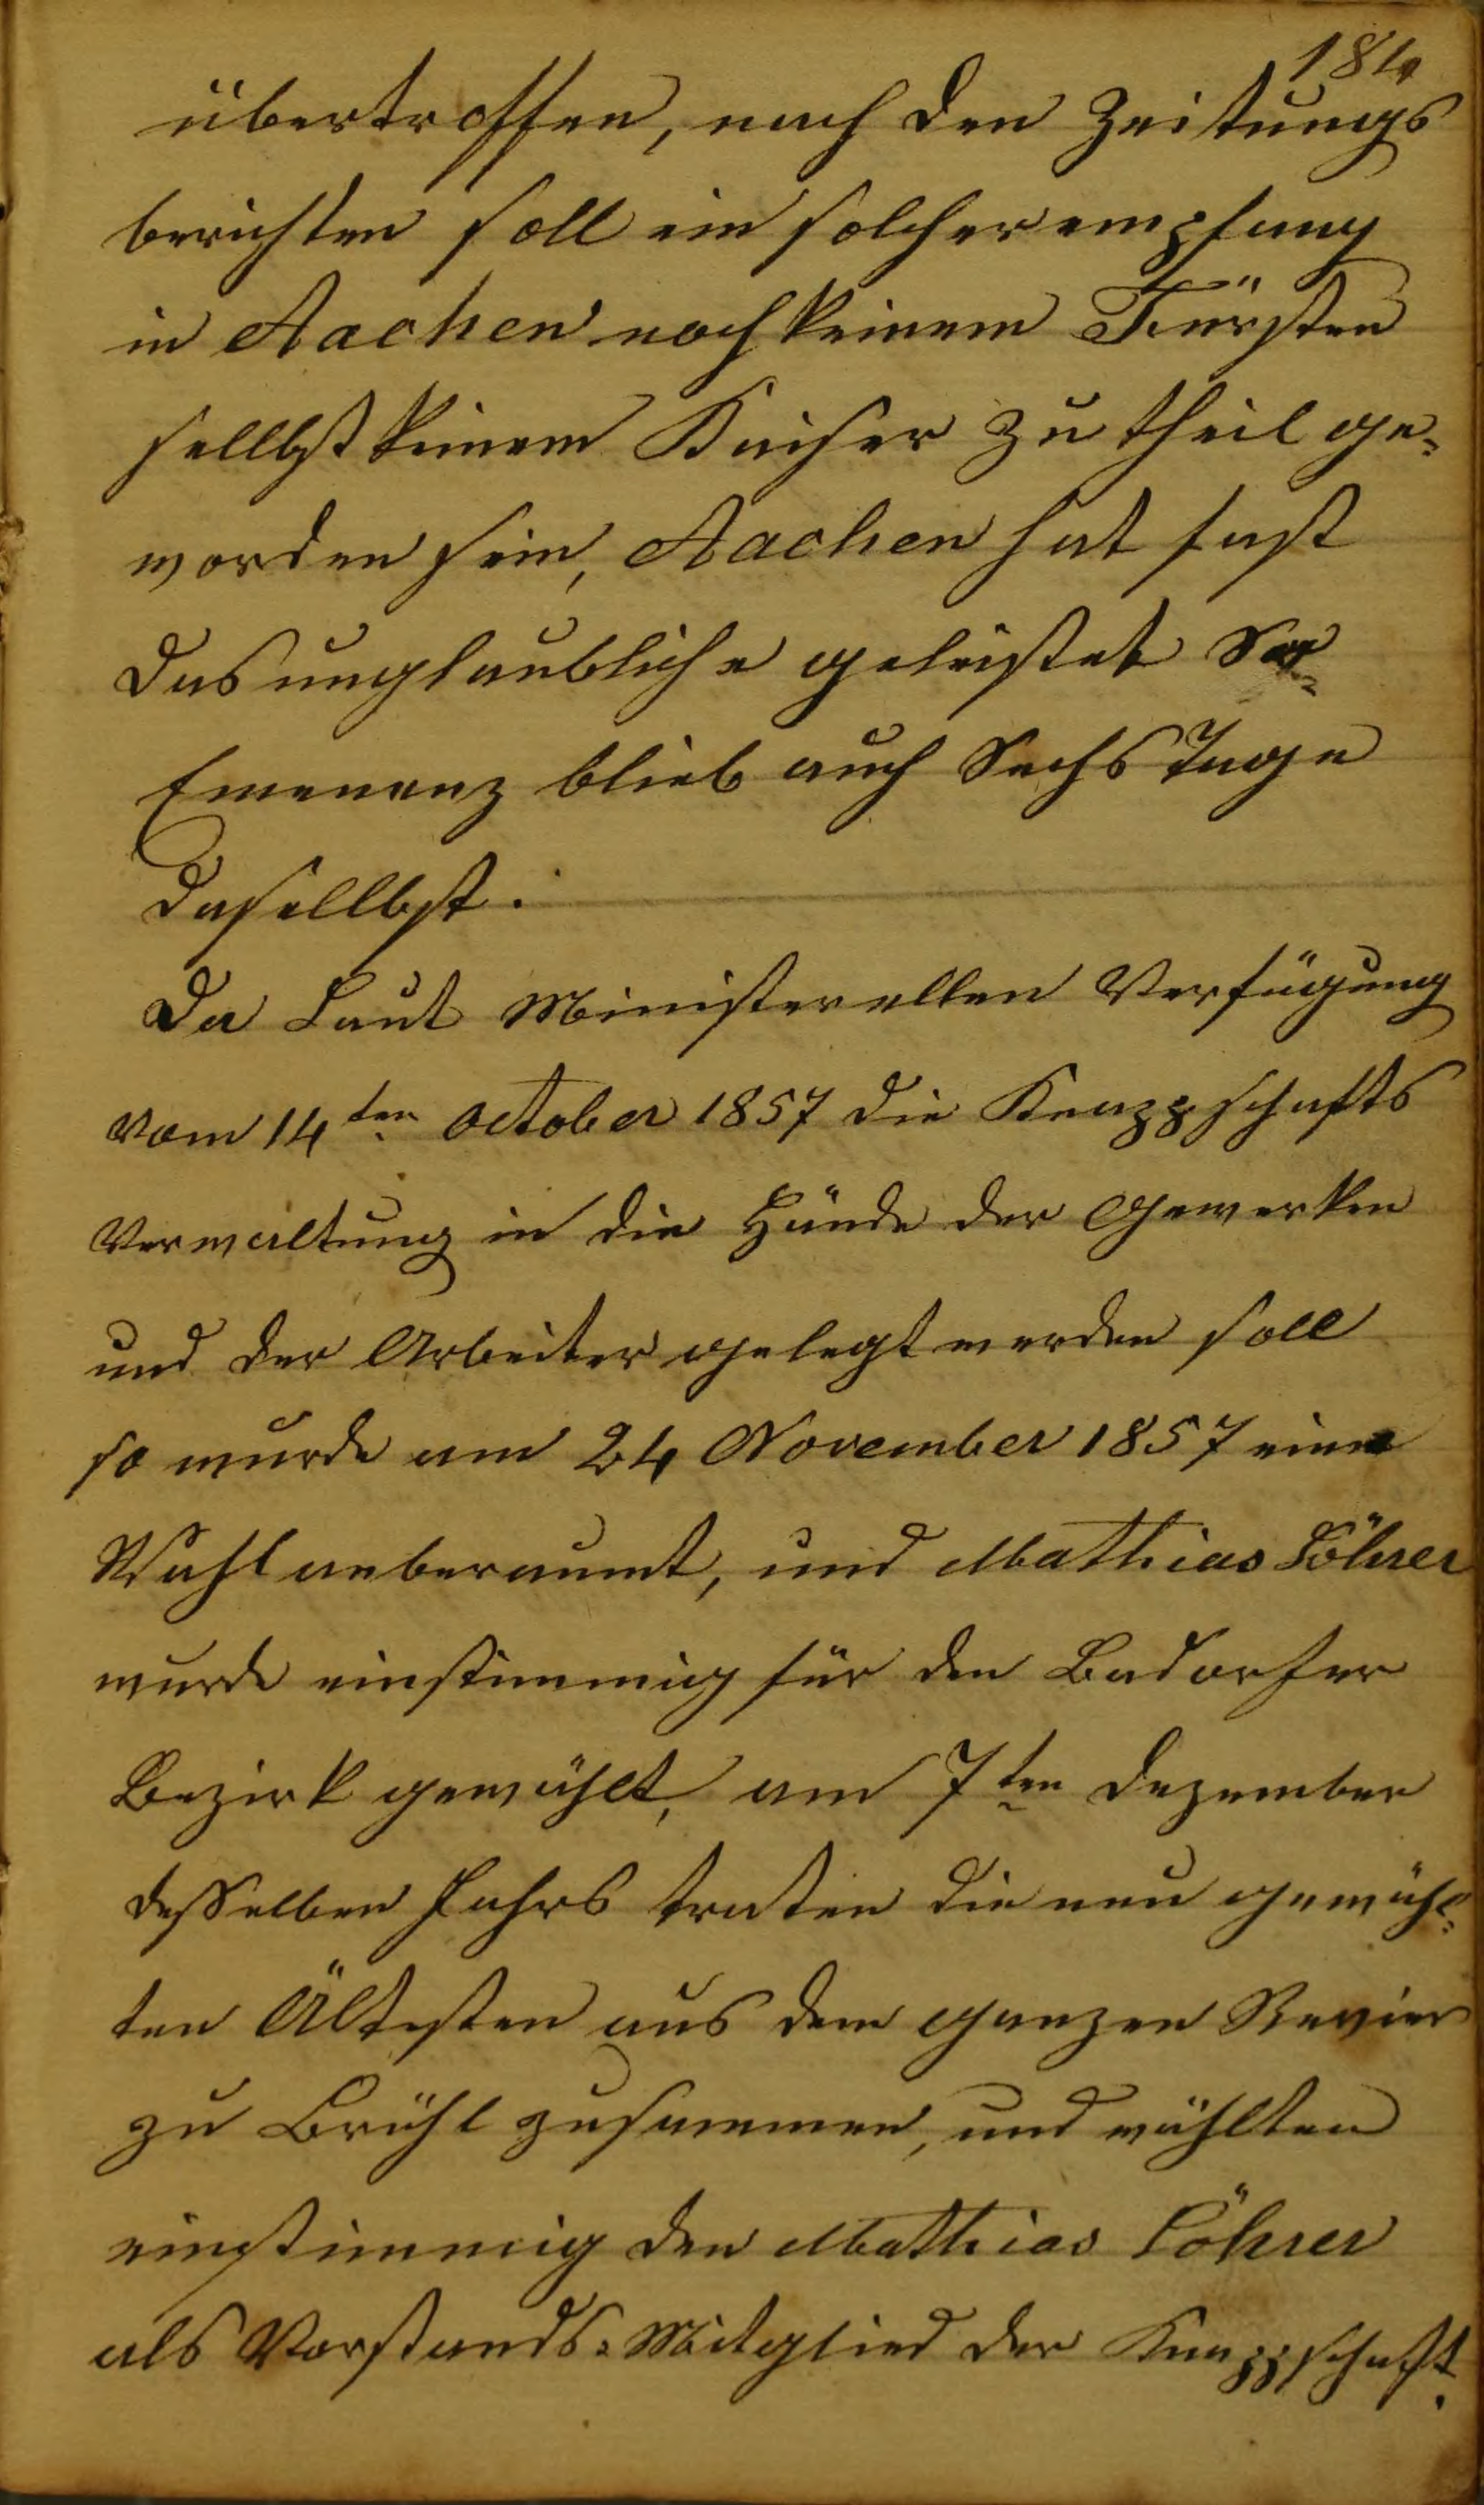 184
übertroffen, nach den Zeitungs
berichten soll ein solcher empfang
in Aachen noch keinem Fürsten
sellbst keinem Kaiser zu theil ge-
worden sein, Aachen hat fast
das unglaubliche geleistet Se-
Emenenz blieb auch Sechs Tage
dasellbst.
Da Laut Ministerellen Verfügung
vom 14ten October 1857 die Knappschafts
Verwaltung in die Hände der Gewerken
und der Arbeiter gelegt werden soll
so wurde am 24 November 1857 eine
Wahl anberaumt, und Mathias Löhrer
wurde einstimmig für den Badorfer
Bezirk gewählt, am 7ten Dezember
desselben Jahrs traten die neu gewähl-
ten Ältesten aus dem ganzen Revier
zu Brühl zusammen, und wählten
einstimmig den Mathias Löhrer
als Vorstands-Mitglied der Knappschaft.